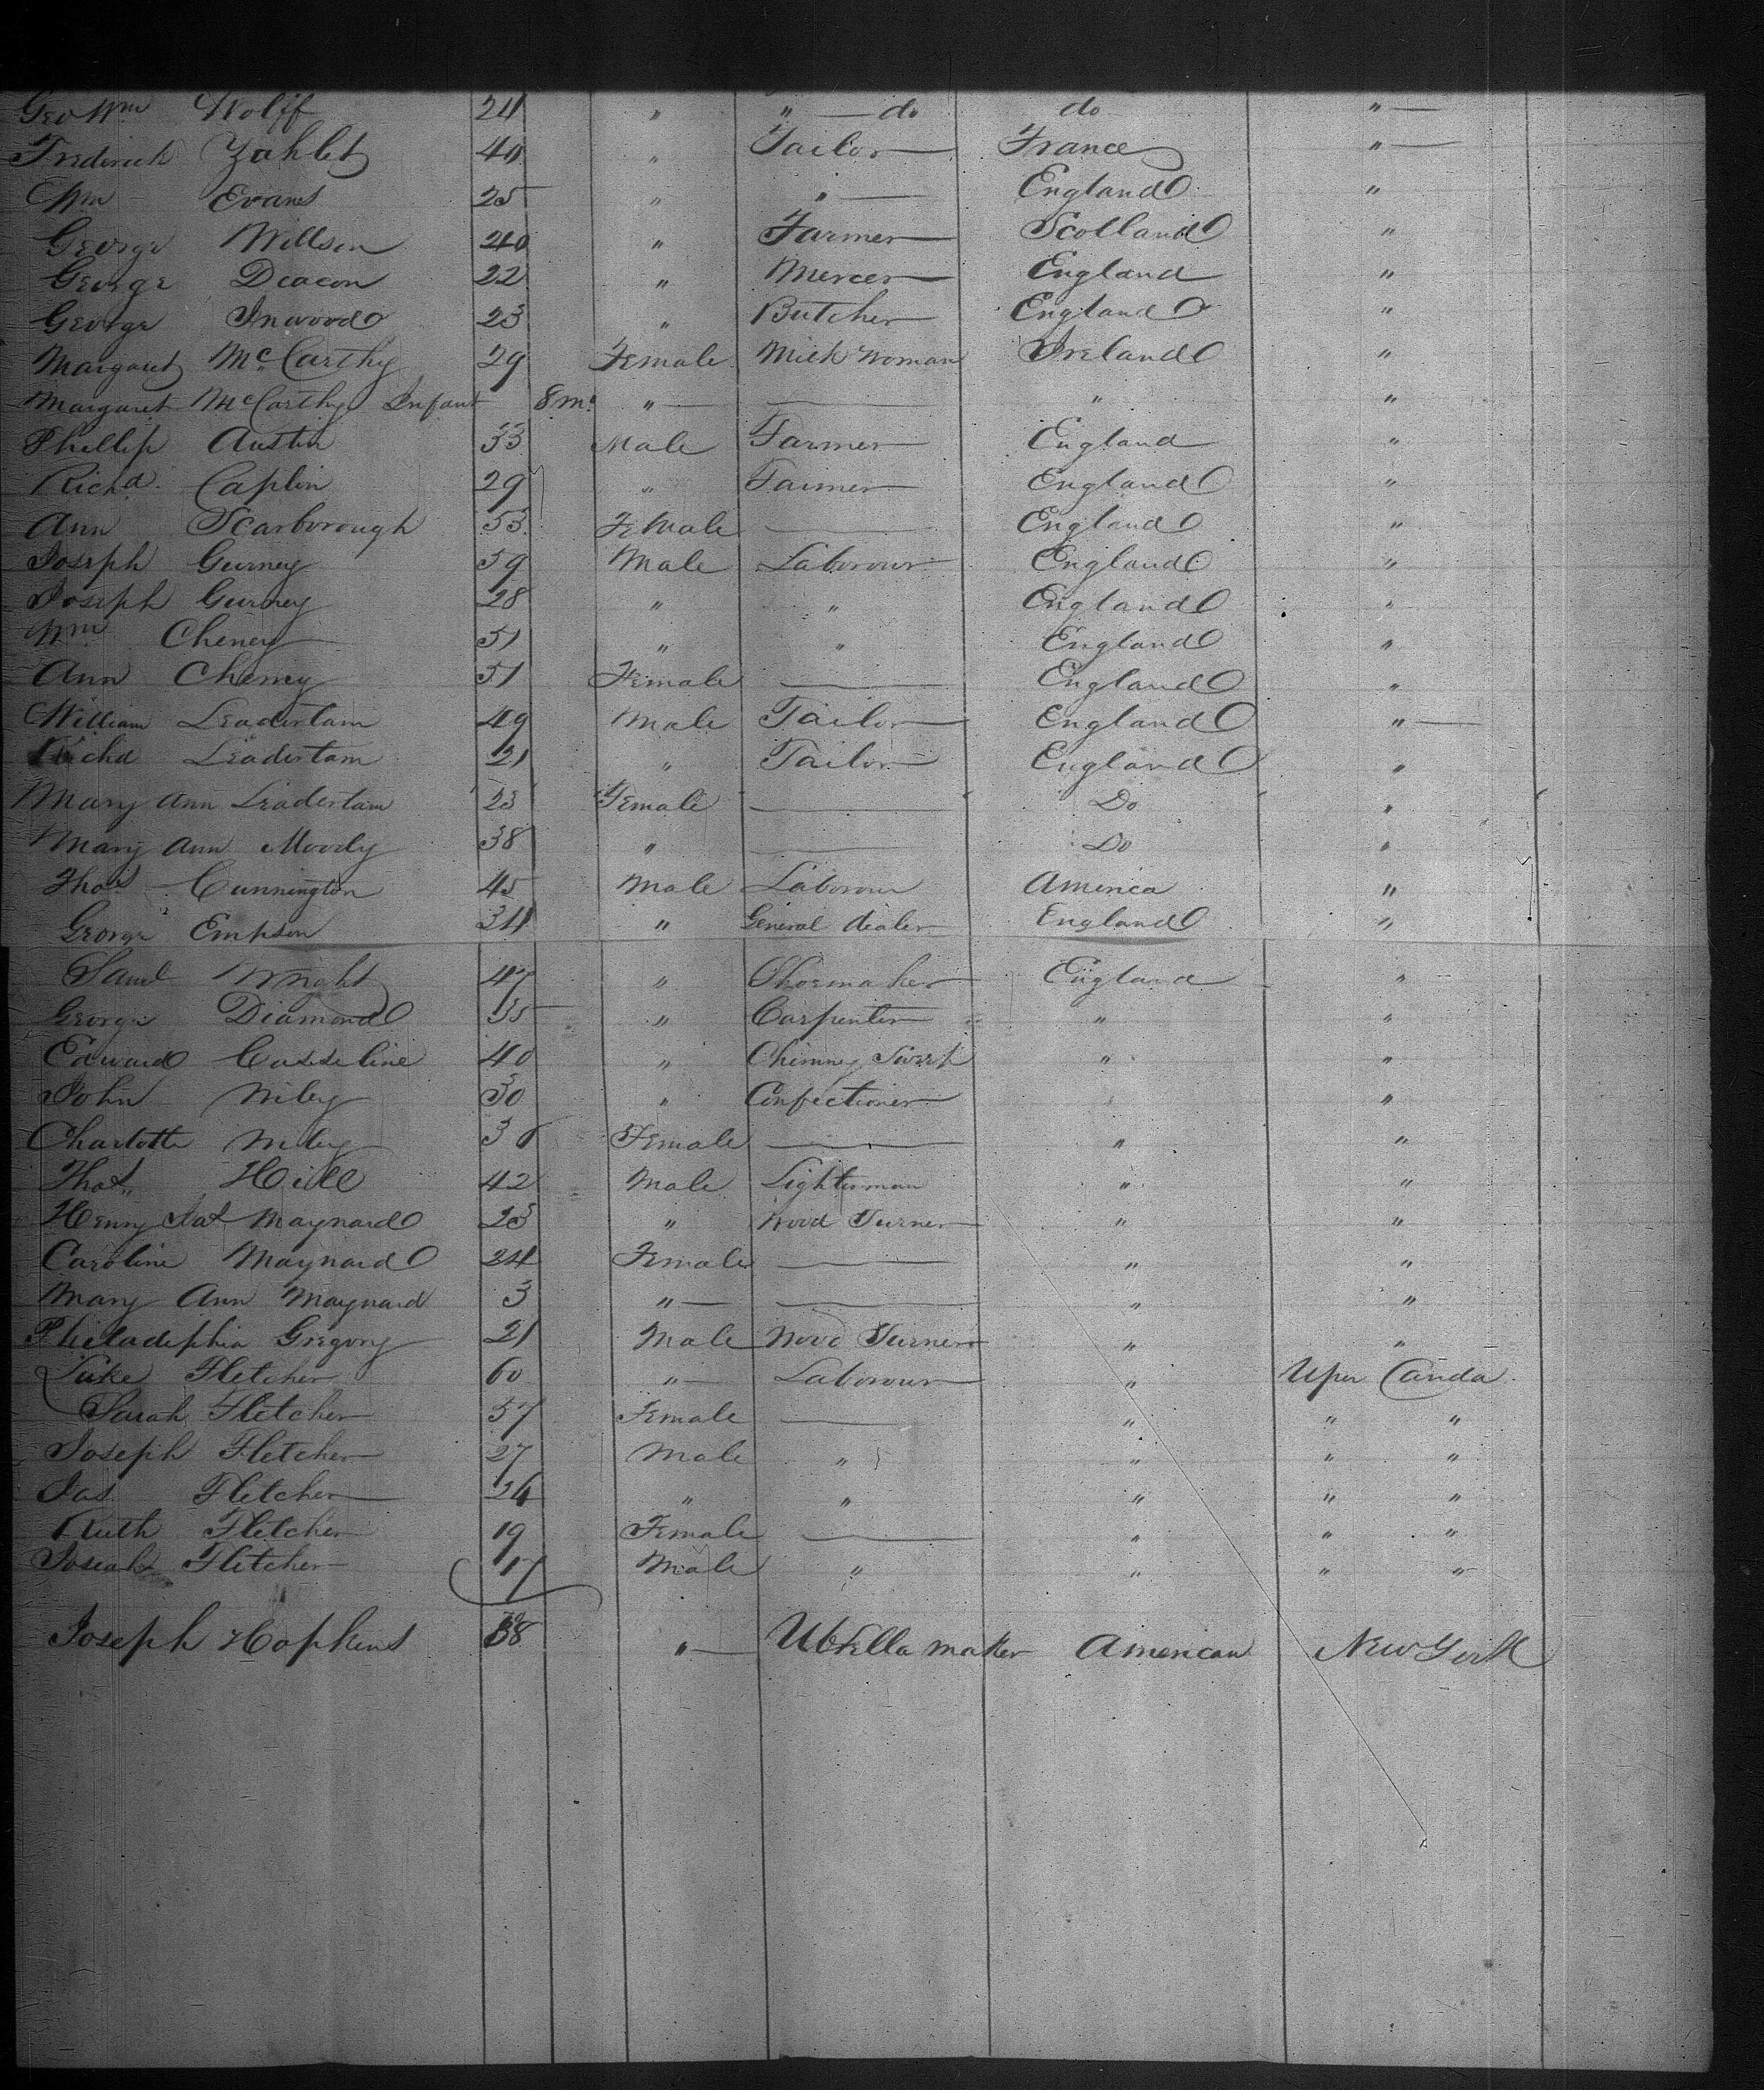 Geo Wm Wolff 24 " " — do do " —
Frederick Zahlet 40 " Tailor France " —
Wm Evans 25 " " — England "
George Willson 40 " Farmer Scotland "
George Deacon 22 " Mercer England "
George Inwood 23 " Butcher England "
Margaret McCarthy 29 Female Milk Woman Ireland "
Margaret McCarthy Infant 8 ms " — — " "
Phillip Austin 33 Male Farmer England "
Richd Caplin 29 " Farmer England "
Ann Scarborough 53 Female — England "
Joseph Gurney 59 Male Labourour England "
Joseph Gurney 28 " " England "
Wm Cheney 51 " " England "
Ann Cheney 51 Female — England "
William Leadertam 49 Male Tailor England " —
Richd Leadertam 21 " Tailor England "
Mary Ann Leadertam 23 Female — Do "
Mary Ann Moody 38 " — Do "
Thos Cunnington 45 Male Laborour America "
George Empson 34 " General dealer England "
Saml Wright 47 " Shoemaker England "
George Diamond 35 " Carpenter " "
Edward 40 " Chimney Sweep " "
John Wiley 30 " Confectioner "
Charlotte Wiley Female — " "
Thos Hill 42 Male Lighterman " "
Henry Jas Maynard 23 " Wood Turner " "
Caroline Maynard 24 Female — " "
Mary Ann Maynard 3 " — — " "
Philadephia Gregory 21 Male Wood Turner " "
Luke Fletcher 60 " — Laborour " Uper Canda
Sarah Fletcher 57 Female — " " "
Joseph Fletcher 27 Male " " " "
Jas Fletcher 24 " " " " "
Ruth Fletcher 19 Female — " " "
Josiah Fletcher 17 Male " " " "
Joseph Hopkins 38 " — Ubrella maker American New York